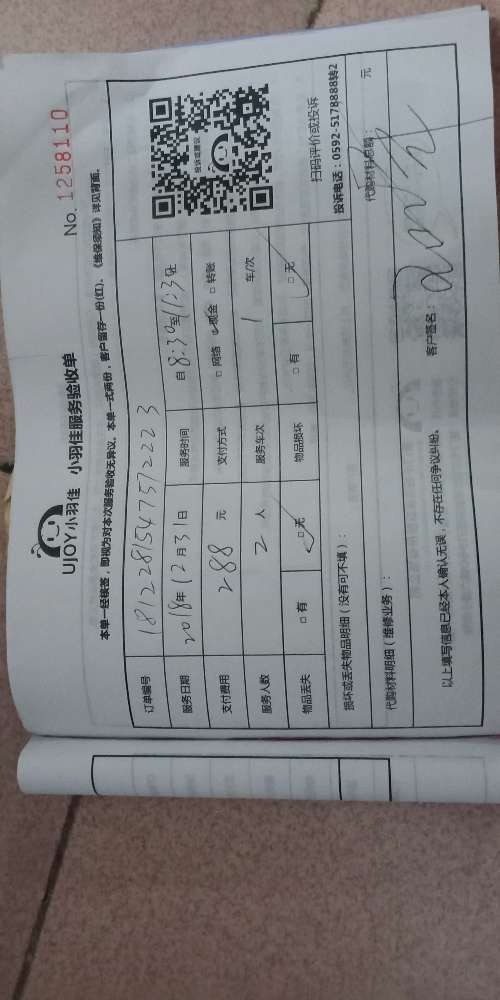 No. 1258110
UJOY小羽佳 小羽佳服务验收单
本单一经核签，即视为对本次服务验收无异议。本单一式两份，客户留存一份(红)。《维保须知》详见背面。
订单编号 18122815475712223
服务日期 2018年12月31日 服务时间 自8:30至11:30止
支付费用 288 元 支付方式 □网络 ☑现金 □转账
服务人数 2 人 服务车次 1 车/次
物品丢失 □有 ☑无 物品损坏 □有 ☑无
投诉或建议
扫码评价或投诉
投诉电话：0592-5178888转2
损坏或丢失物品明细（没有可不填）：
代购材料明细（维修业务）： 代购材料总额： 元
以上填写信息已经本人确认无误，不存在任何争议纠纷。 客户签名：